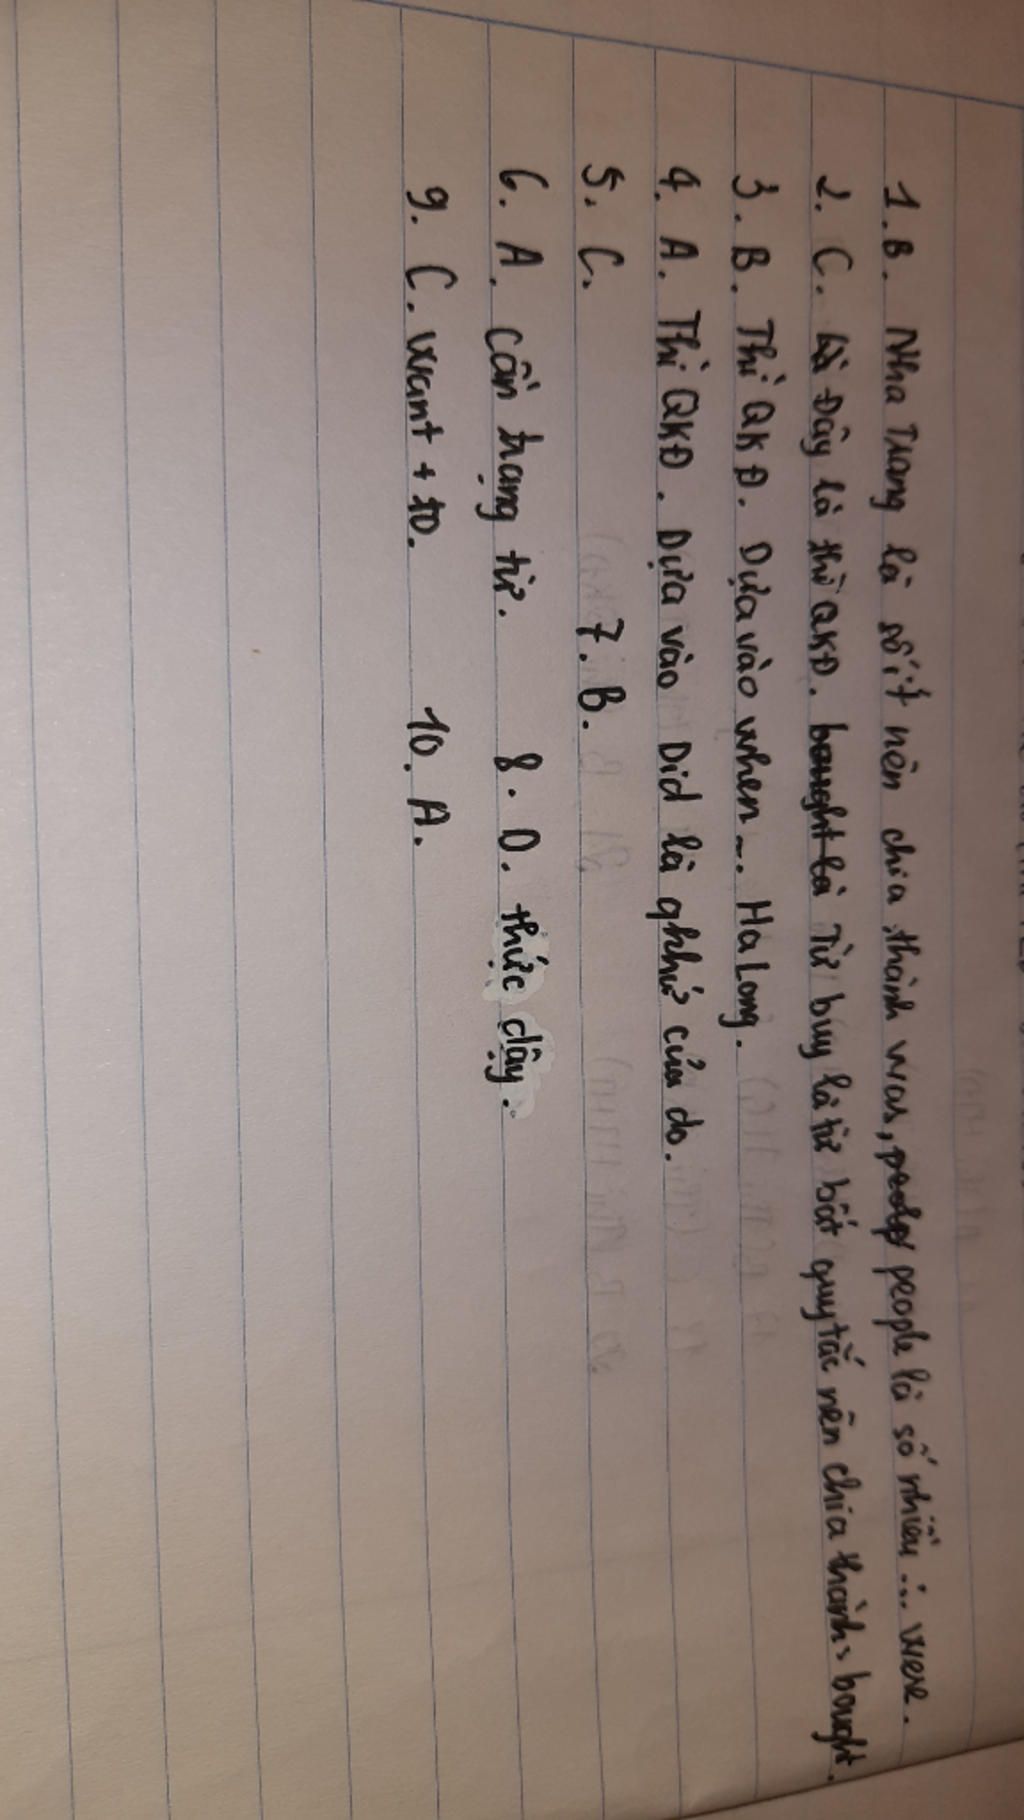 1. B. Nha Trang là số ít nên chia thành was, people people là số nhiều ... were.
2. C. Đây là thì QKĐ. bought là Từ buy là từ bất quy tắc nên chia thành bought.
3. B. Thì QKĐ. Dựa vào when ... Ha Long.
4. A. Thì QKĐ. Dựa vào Did là qkhứ của do.
5. C. 7. B.
6. A. cần trạng từ. 8. D. thức dậy.
9. C. want + to. 10. A.